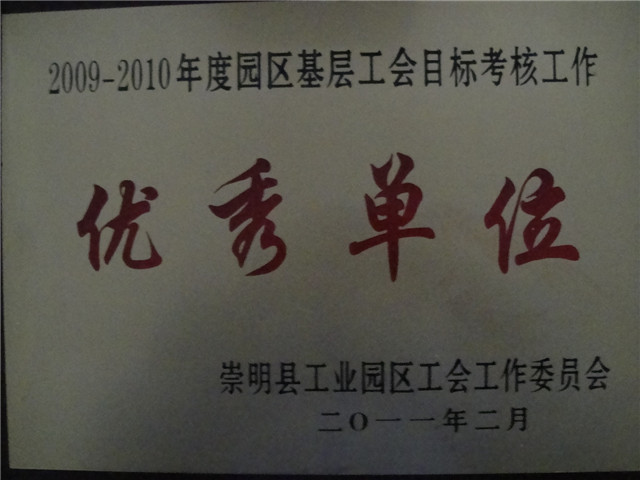 2009-2010年度园区基层工会目标考核工作
优秀单位
崇明县工业园区工会工作委员会
二〇一一年二月